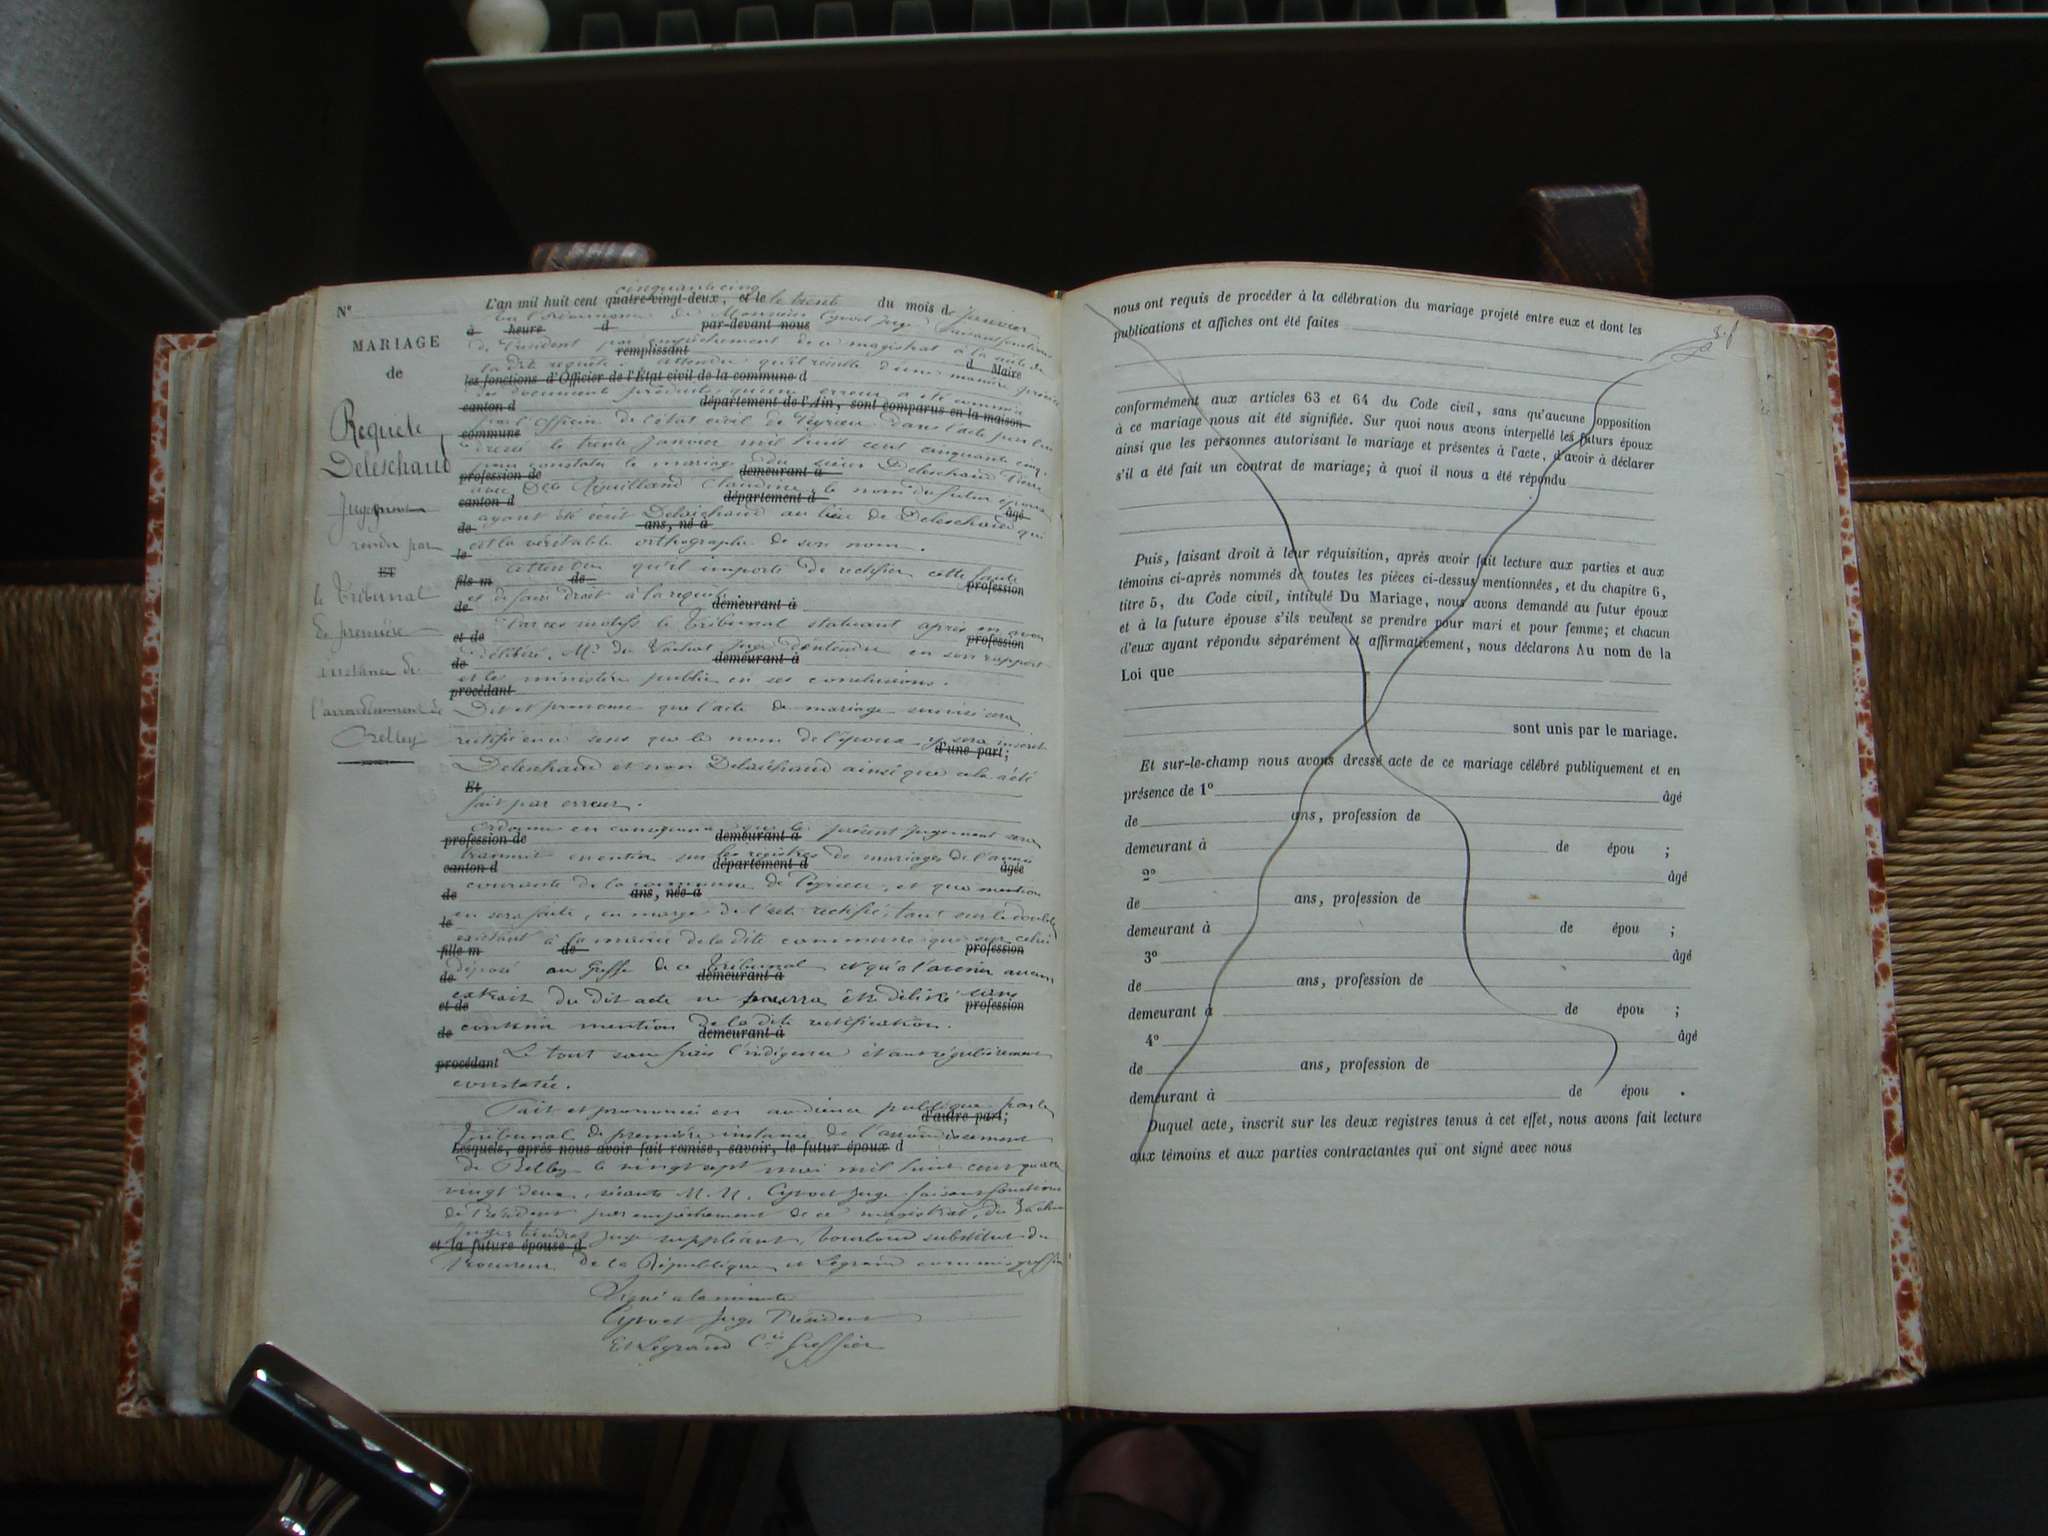 N°
MARIAGE
de
Requête
Deleschaud
Jugement
rendu par
ET
le Tribunal
de première
instance de
l'arrondissement de
Belley
cinquante cinq
L'an mil huit cent quatre-vingt-deux, et le le trente du mois de janvier
Vu l'Ordonnance de Monsieur Cyvoct Juge faisant fonctions
à heure d par-devant nous
de Président par empêchement de ce magistrat à la suite de
remplissant
la dite requête. Attendu qu'il résulte d'une manière précise
d Maire
les fonctions d'Officier de l'État civil de la commune d
des documents produits qu'une erreur a été commise
canton d département de l'Ain, sont comparus en la maison
par l'Officier de l'état civil de Peyrieu dans l'acte par lui
commune
dressé le trente janvier mil huit cent cinquante cinq
pour constater le mariage du sieur Deleschaud Pierre
profession de demeurant à
avec Claudine, le nom du futur époux
canton d département d âgé
ayant été écrit Delaichaud au lieu de Deleschaud qui
de ans, né à
est la véritable orthographe de son nom.
le
Attendu qu'il importe de rectifier cette faute
fils m de profession
et de faire droit à la requête.
de demeurant à
Par ces motifs le Tribunal statuant après en avoir
et de profession
délibéré, Mr du Vachat Juge entendu en son rapport
de demeurant à
et le ministère public en ses conclusions.
procédant
Dit et prononce que l'acte de mariage susvisé sera
rectifié en ce sens que le nom de l'époux y sera inscrit
d'une part;
Deleschaud et non Delaichaud ainsi que cela a été
Et
fait par erreur.
Ordonne en conséquence que le présent jugement sera
profession de demeurant à
transcrit en entier sur les registres de mariages de l'année
canton d département d âgée
courante de la commune de Peyrieu, et que mention
de ans, née à
en sera faite, en marge de l'acte rectifié, tant sur le double
le
existant à la mairie de la dite commune que sur celui
fille m de profession
déposé au Greffe de ce Tribunal et qu'à l'avenir aucun
de demeurant à
extrait du dit acte ne pourra être délivré sans
et de profession
contenir mention de la dite rectification.
de demeurant à
Le tout sans frais l'indigence étant régulièrement
procédant
constatée.
Fait et prononcé en audience publique par le
d'autre part;
Tribunal de première instance de l'arrondissement
Lesquels, après nous avoir fait remise, savoir, le futur époux d
de Belley le vingt sept mai mil huit cent quatre
vingt deux, séants M.M. Cyvoct Juge faisant fonctions
de Président par empêchement de ce magistrat, du Vachat
Juge suppléant, substitut du
et la future épouse d
Procureur de la République et Legrand commis greffier
Signé à la minute
Cyvoct Juge Président
Et Legrand Cis Greffier
nous ont requis de procéder à la célébration du mariage projeté entre eux et dont les
publications et affiches ont été faites
conformément aux articles 63 et 64 du Code civil, sans qu'aucune opposition
à ce mariage nous ait été signifiée. Sur quoi nous avons interpellé les futurs époux
ainsi que les personnes autorisant le mariage et présentes à l'acte, d'avoir à déclarer
s'il a été fait un contrat de mariage; à quoi il nous a été répondu
Puis, faisant droit à leur réquisition, après avoir fait lecture aux parties et aux
témoins ci-après nommés de toutes les pièces ci-dessus mentionnées, et du chapitre 6,
titre 5, du Code civil, intitulé Du Mariage, nous avons demandé au futur époux
et à la future épouse s'ils veulent se prendre pour mari et pour femme; et chacun
d'eux ayant répondu séparément et affirmativement, nous déclarons Au nom de la
Loi que
sont unis par le mariage.
Et sur-le-champ nous avons dressé acte de ce mariage célébré publiquement et en
présence de 1° âgé
de ans, profession de
demeurant à de épou ;
2° âgé
de ans, profession de
demeurant à de épou ;
3° âgé
de ans, profession de
demeurant à de épou ;
4° âgé
de ans, profession de
demeurant à de épou .
Duquel acte, inscrit sur les deux registres tenus à cet effet, nous avons fait lecture
aux témoins et aux parties contractantes qui ont signé avec nous